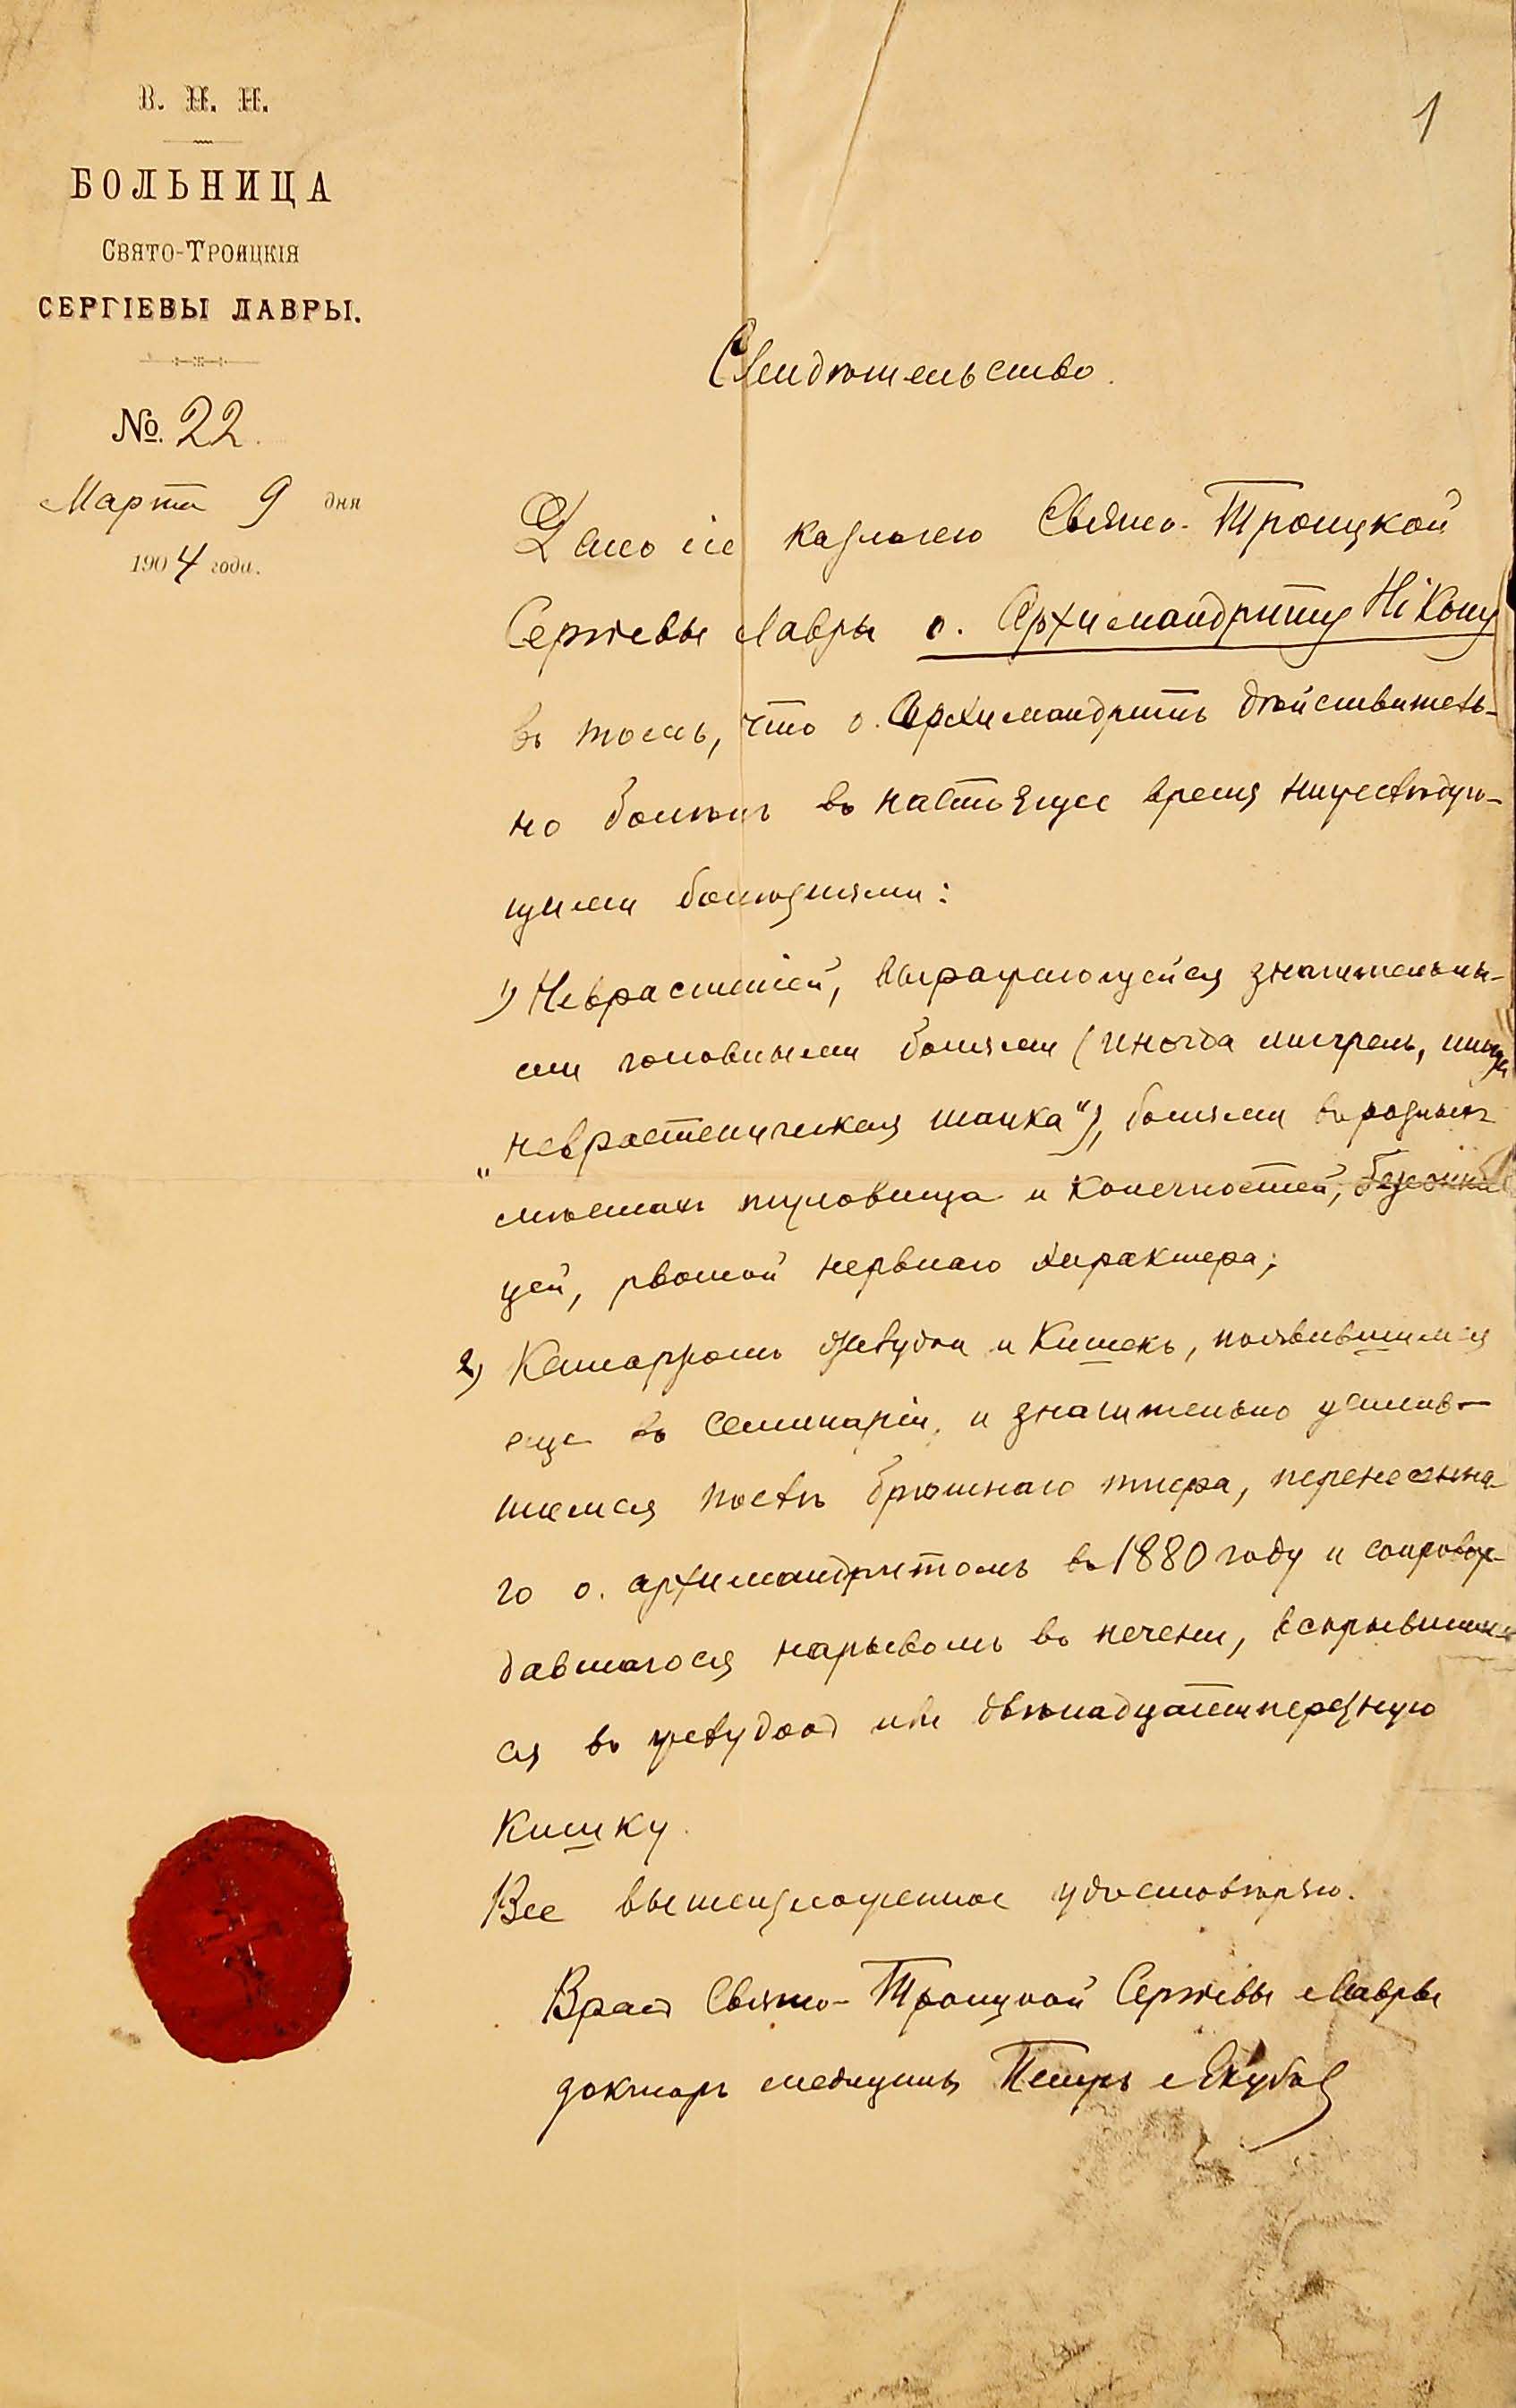 В. П. И.
1
БОЛЬНИЦА
Свято-Троицкія
СЕРГІЕВЫ ЛАВРЫ.
№. 22.
Марта 9 дня
1904 года.
Свидѣтельство.
Дано сіе казначею Свято-Троицкой
Сергіевы Лавры о. Архимандриту Нікону
въ томъ, что о. Архимандритъ дѣйствитель-
но боленъ въ настоящее время нижеслѣдую-
щими болѣзнями:
1) Неврастеніей, выражающейся значительны-
ми головными болями (иногда мигрень, иногда
"неврастеническая шапка"), болями въ разныхъ
мѣстахъ туловища и конечностей, безсонни
цей, рвотой нервнаго характера;
2) Катарромъ желудка и кишекъ, появившимся
еще въ семинаріи, и значительно усилив-
шимся послѣ брюшнаго тифа, перенесенна
го о. архимандритомъ въ 1880 году и сопровож-
давшагося нарывомъ въ печени, вскрывшим
ся въ желудокъ или двѣнадцатиперстную
кишку.
Все вышеизложенное удостовѣряю.
Врачъ Свято-Троицкой Сергіевы Лавры
докторъ медицины Петръ Якубов